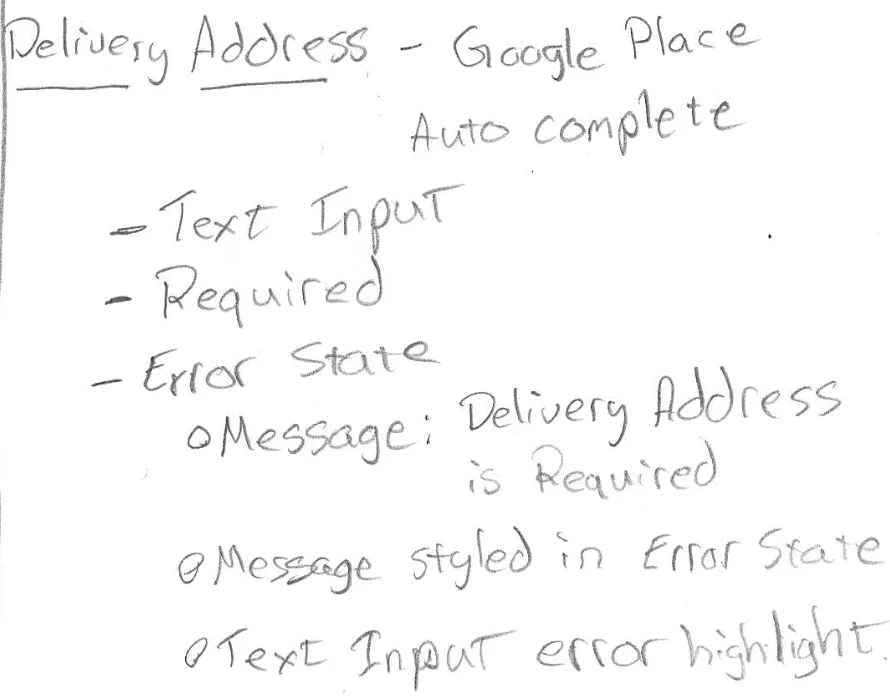 Delivery Address - Google Place
Auto complete
- Text Input
- Required
- Error State
o Message: Delivery Address
is Required
o Message styled in Error State
o Text Input error highlight.